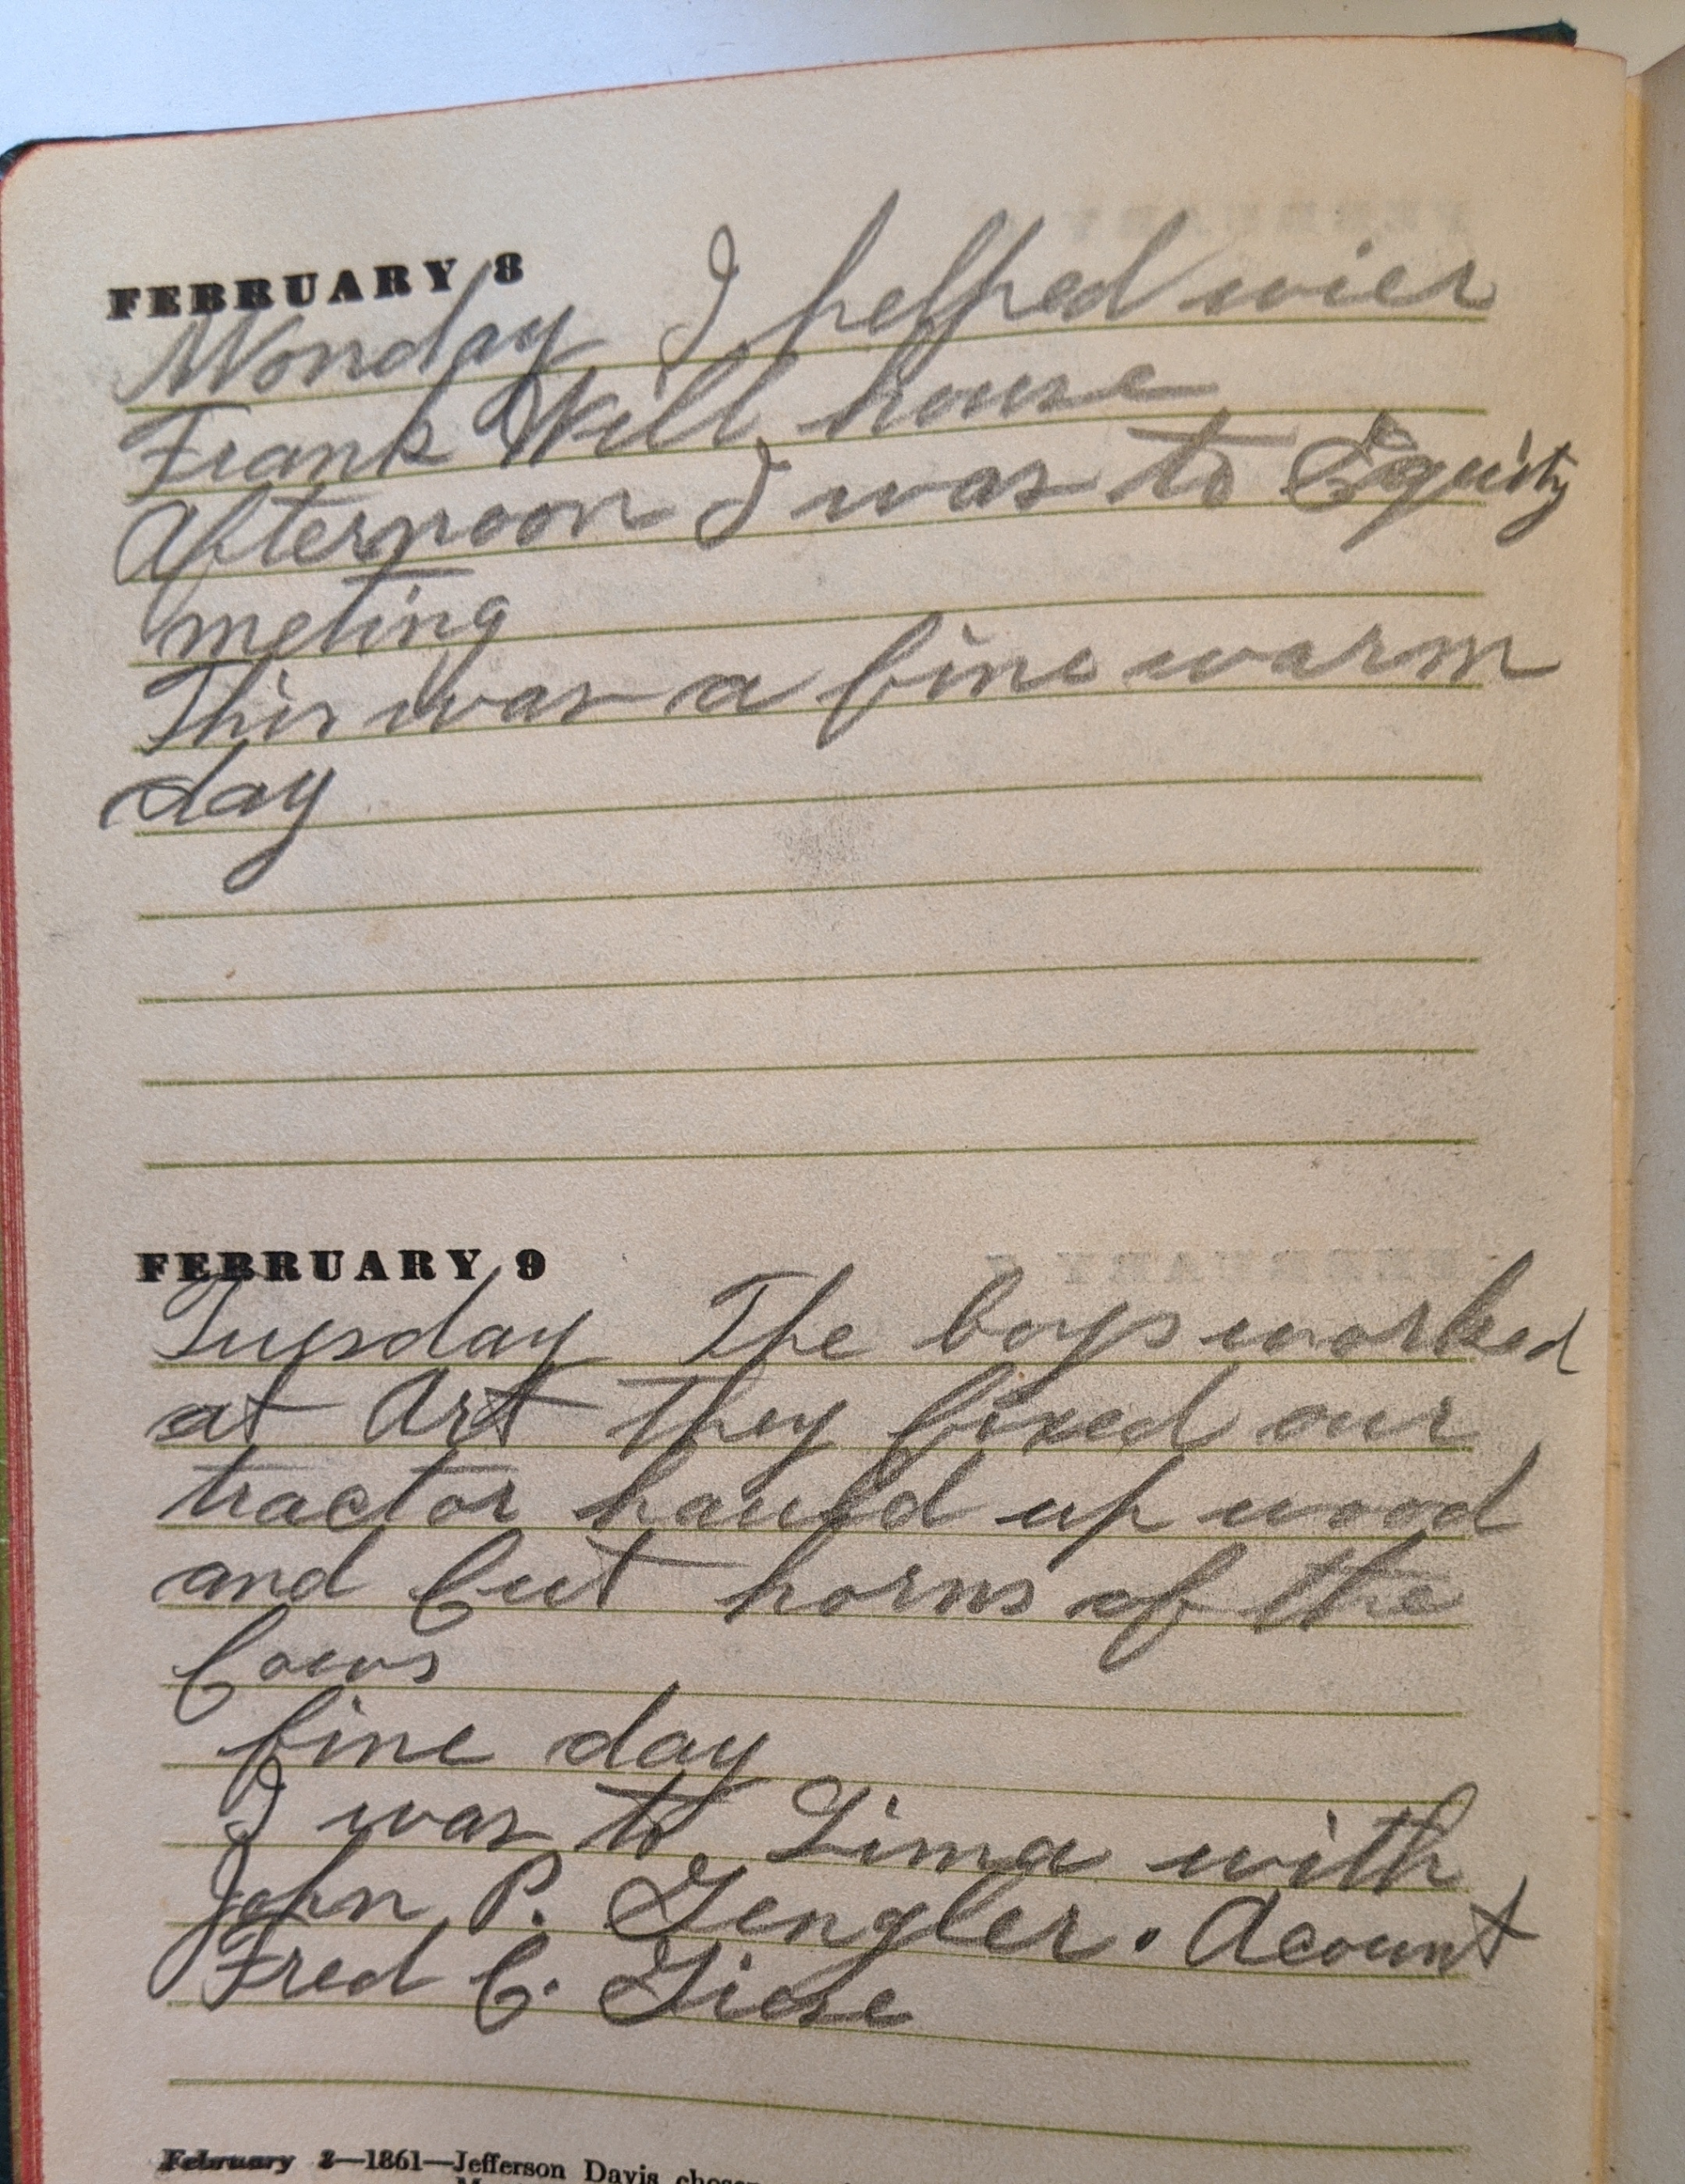 FEBRUARY 8
Monday I helped wier
Frank Will house
Afternoon I was to Equity
meting
This was a fine warm
day
FEBRUARY 9
Tuesday The boys worked
at Art They fixed our
tractor hauld up wood
and Cut horns of the
Cows
fine day
I was to Lima with
John P. Gengler. Acount
Fred C. Giese
February 8—1861—Jefferson Davis